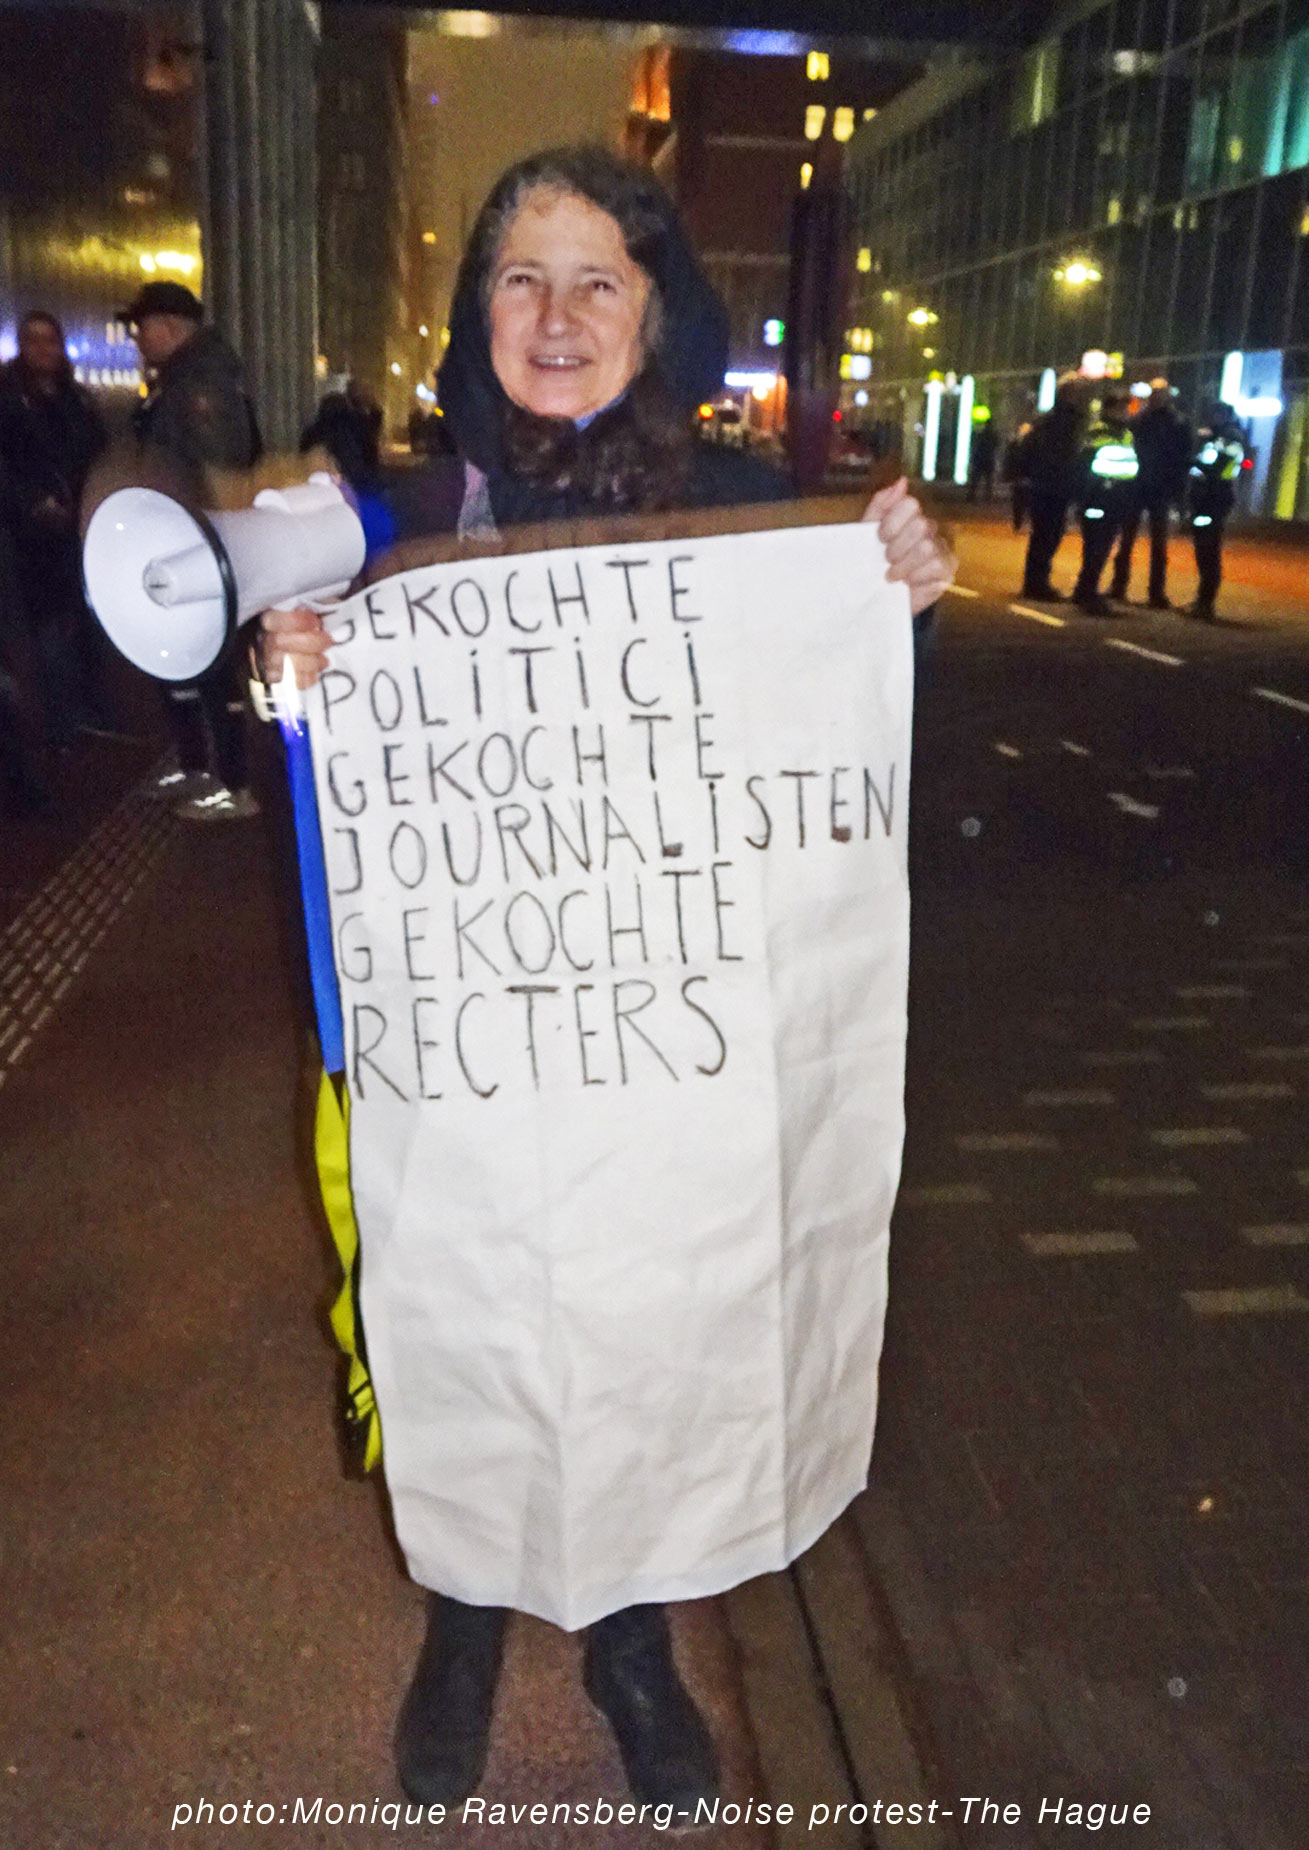 GEKOCHTE
POLiTiCi
GEKOCHTE
JOURNALiSTEN
GEKOCHTE
RECTERS
photo:Monique Ravensberg-Noise protest-The Hague